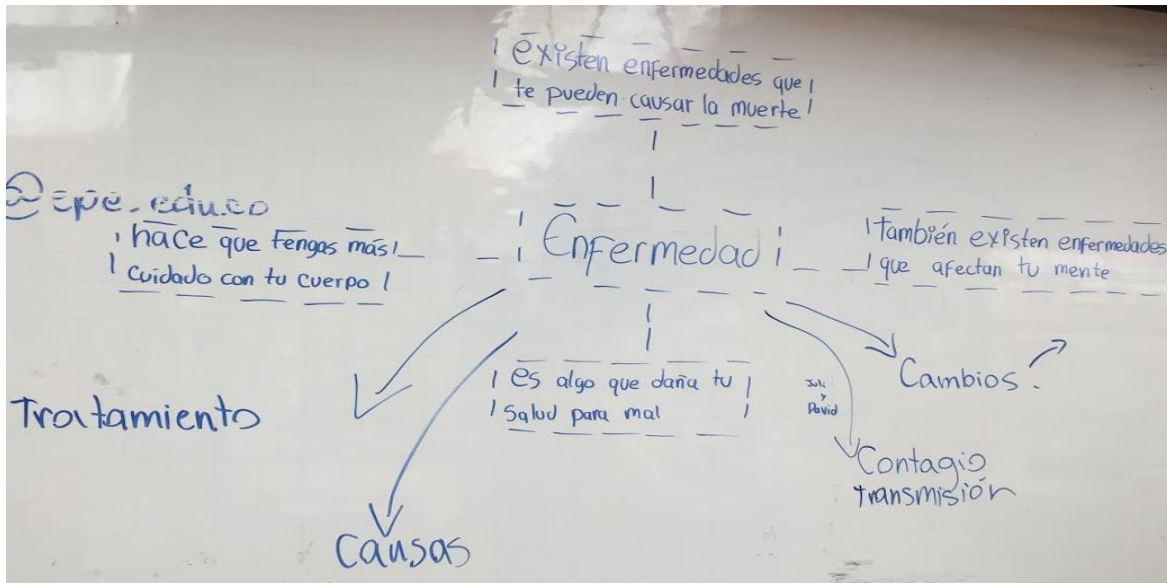 existen enfermedades que
te pueden causar la muerte
epe.edu.co
hace que tengas más
cuidado con tu cuerpo
Enfermedad
también existen enfermedades
que afectan tu mente
Tratamiento
es algo que daña tu
salud para mal
Juli
y
David
Cambios
Contagio
transmisión
Causas